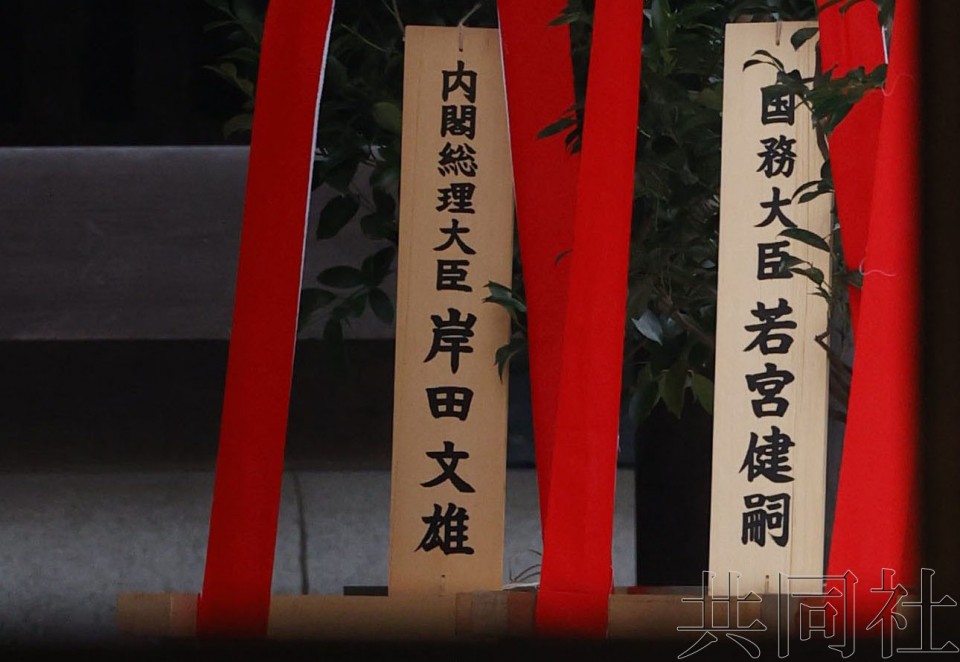 内閣総理大臣 岸田文雄
国務大臣 若宮健嗣
共同社